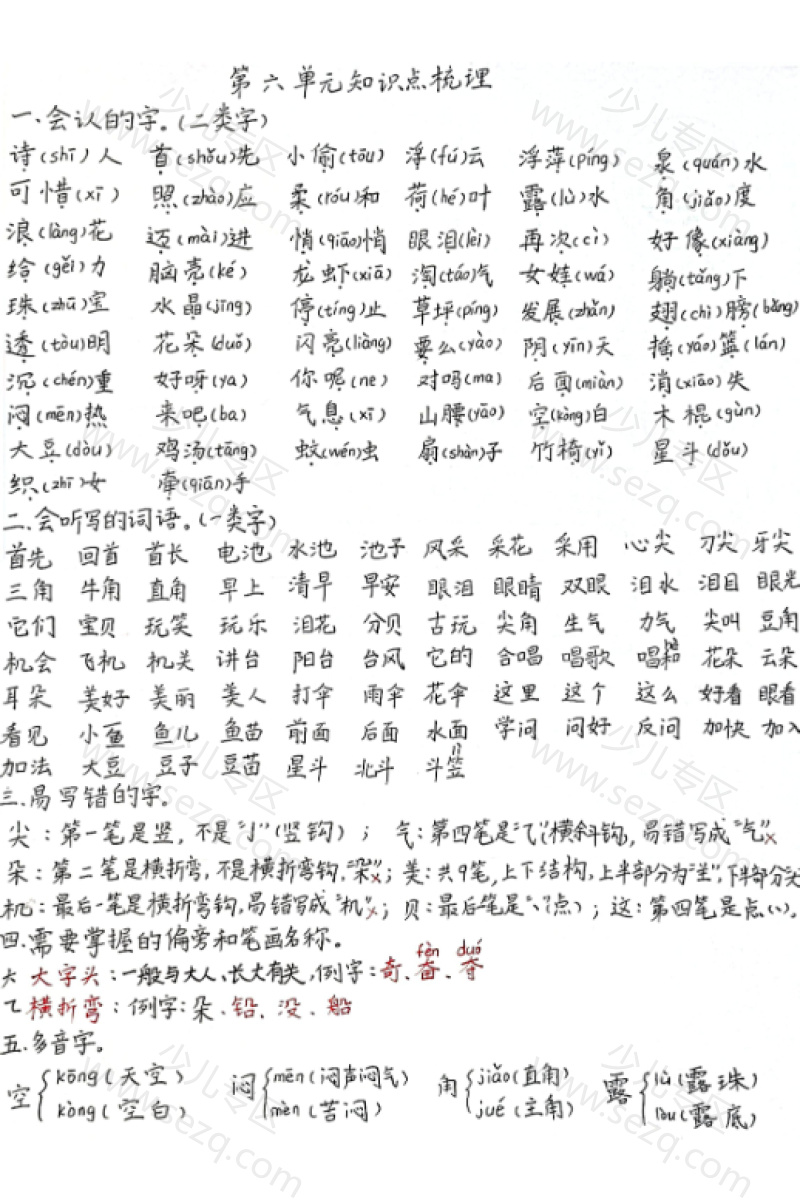 第六单元知识点梳理
一、会认的字。(二类字)
诗(shī)人 首(shǒu)先 小偷(tōu) 浮(fú)云 浮萍(píng) 泉(quán)水
可惜(xī) 照(zhào)应 柔(róu)和 荷(hé)叶 露(lù)水 角(jiǎo)度
浪(làng)花 迈(mài)进 悄(qiāo)悄 眼泪(lèi) 再次(cì) 好像(xiàng)
给(gěi)力 脑壳(ké) 龙虾(xiā) 淘(táo)气 女娃(wá) 躺(tǎng)下
珠(zhū)宝 水晶(jīng) 停(tíng)止 草坪(píng) 发展(zhǎn) 翅(chì)膀(bǎng)
透(tòu)明 花朵(duǒ) 闪亮(liàng) 要么(yào) 阴(yīn)天 摇(yáo)篮(lán)
沉(chén)重 好呀(ya) 你呢(ne) 对吗(ma) 后面(miàn) 消(xiāo)失
闷(mēn)热 来吧(ba) 气息(xī) 山腰(yāo) 空(kòng)白 木棍(gùn)
大豆(dòu) 鸡汤(tāng) 蚊(wén)虫 扇(shàn)子 竹椅(yǐ) 星斗(dǒu)
织(zhī)女 牵(qiān)手
二、会听写的词语。(一类字)
首先 回首 首长 电池 水池 池子 风采 采花 采用 心尖 刀尖 牙尖
三角 牛角 直角 早上 清早 早安 眼泪 眼睛 双眼 泪水 泪目 眼光
它们 宝贝 玩笑 玩乐 泪花 分贝 古玩 尖角 生气 力气 尖叫 豆角
机会 飞机 机关 讲台 阳台 台风 它的 合唱 唱歌 唱和 花朵 云朵
耳朵 美好 美丽 美人 打伞 雨伞 花伞 这里 这个 这么 好看 眼看
看见 小鱼 鱼儿 鱼苗 前面 后面 水面 学问 问好 反问 加快 加入
加法 大豆 豆子 豆苗 星斗 北斗 斗笠
三、易写错的字。
尖：第一笔是竖，不是“亅”(竖钩)；气：第四笔是“⺄”(横斜钩)，易错写成“气”×
朵：第二笔是横折弯，不是横折弯钩，“朵”×；美：共9笔，上下结构，上半部分为“𦍌”，下半部分“大
机：最后一笔是横折弯钩，易错写成“机”×；贝：最后一笔是“丶”(点)；这：第四笔是点(丶)。
四、需要掌握的偏旁和笔画名称。
fèn duó
大 大字头：一般与大人、长大有关，例字：奇、奋、夺
㇍ 横折弯：例字：朵、铅、没、船
五、多音字。
空 kōng(天空) 闷 mēn(闷声闷气) 角 jiǎo(直角) 露 lù(露珠)
kòng(空白) mèn(苦闷) jué(主角) lòu(露底)
少儿专区
www.sezq.com